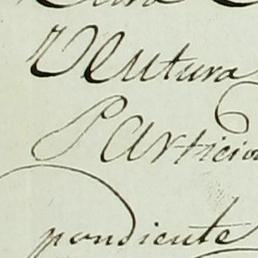 Ventura
Particion
pondiente